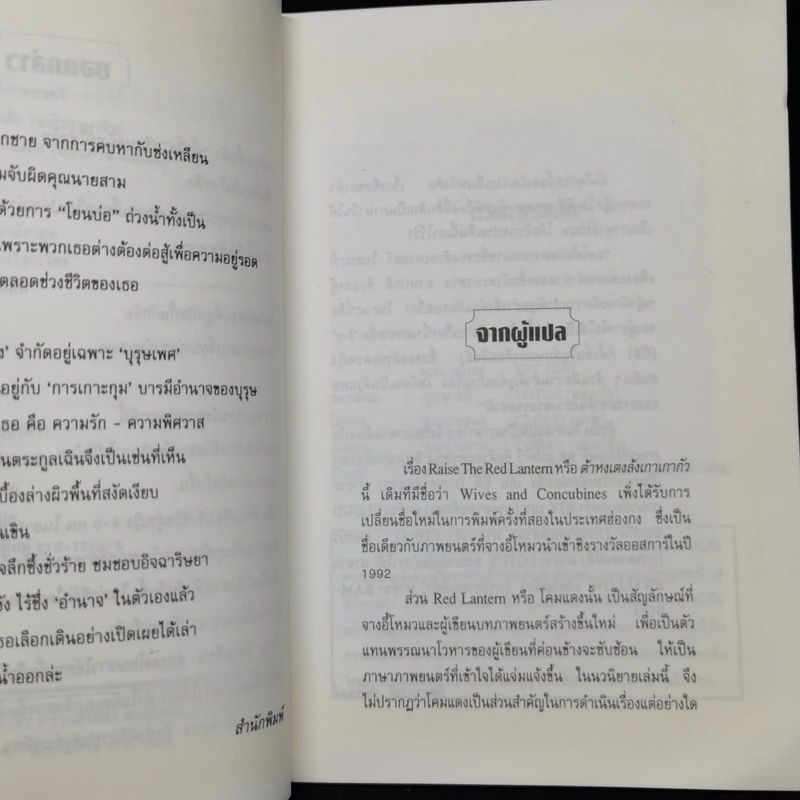 กชาย จากการคบหากับช่งเหลียน
มจับผิดคุณนายสาม
ด้วยการ “โยนบ่อ” ถ่วงน้ำทั้งเป็น
เพราะพวกเธอต่างต้องต่อสู้เพื่อความอยู่รอด
ตลอดช่วงชีวิตของเธอ
ง’ จำกัดอยู่เฉพาะ ‘บุรุษเพศ’
นอยู่กับ ‘การเกาะกุม’ บารมีอำนาจของบุรุษ
เธอ คือ ความรัก – ความพิศวาส
นตระกูลเฉินจึงเป็นเช่นที่เห็น
เบื้องล่างผิวพื้นที่สงัดเงียบ
นเขิน
จลึกซึ้งชั่วร้าย ชมชอบอิจฉาริษยา
ัง ไร้ซึ่ง ‘อำนาจ’ ในตัวเองแล้ว
ธอเลือกเดินอย่างเปิดเผยได้เล่า
น้ำออกล่ะ
สำนักพิมพ์
จากผู้แปล
เรื่อง Raise The Red Lantern หรือ ต้าหงเตงลังเกาเกากัว
นี้ เดิมทีมีชื่อว่า Wives and Concubines เพิ่งได้รับการ
เปลี่ยนชื่อใหม่ในการพิมพ์ครั้งที่สองในประเทศฮ่องกง ซึ่งเป็น
ชื่อเดียวกับภาพยนตร์ที่จางอี้โหมวนำเข้าชิงรางวัลออสการ์ในปี
1992
ส่วน Red Lantern หรือ โคมแดงนั้น เป็นสัญลักษณ์ที่
จางอี้โหมวและผู้เขียนบทภาพยนตร์สร้างขึ้นใหม่ เพื่อเป็นตัว
แทนพรรณนาโวหารของผู้เขียนที่ค่อนข้างจะซับซ้อน ให้เป็น
ภาษาภาพยนตร์ที่เข้าใจได้แจ่มแจ้งขึ้น ในนวนิยายเล่มนี้ จึง
ไม่ปรากฏว่าโคมแดงเป็นส่วนสำคัญในการดำเนินเรื่องแต่อย่างใด